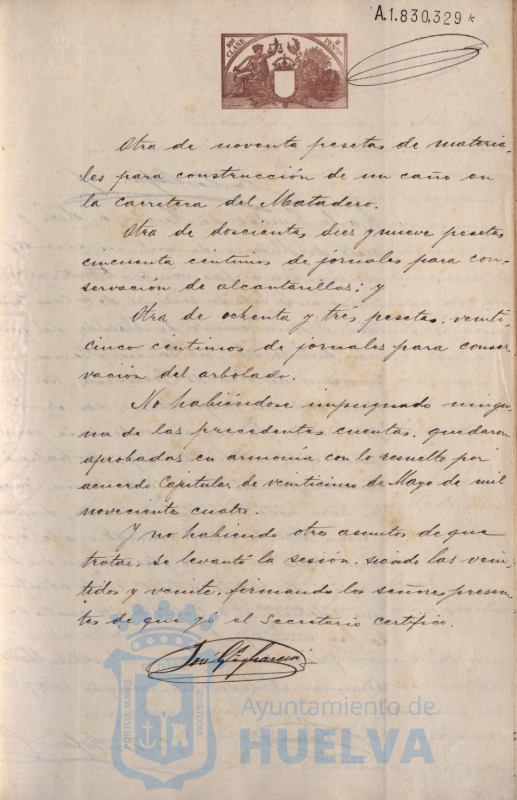 A.1.830.329*
10ª CLASE
2 PESETAS
Otra de noventa pesetas de materia-
les para construcción de un caño en
la carretera del Matadero.
Otra de doscientas diez y nueve pesetas
cincuenta céntimos de jornales para con-
servación de alcantarillas; y
Otra de ochenta y tres pesetas, veinti-
cinco céntimos de jornales para conser-
vación del arbolado.
No habiéndose impugnado ningu-
na de las precedentes cuentas, quedaron
aprobadas en armonía con lo resuelto por
acuerdo Capitular de veinticinco de Mayo de mil
noveciento cuatro.
Y no habiendo otro asuntos de que
tratar, se levantó la sesión, siendo las vein-
tidos y veinte, firmando los señores presen-
tes de que yó el Secretario certifico.
PORTUS MARIS
CUSTODIA
Ayuntamiento de
HUELVA